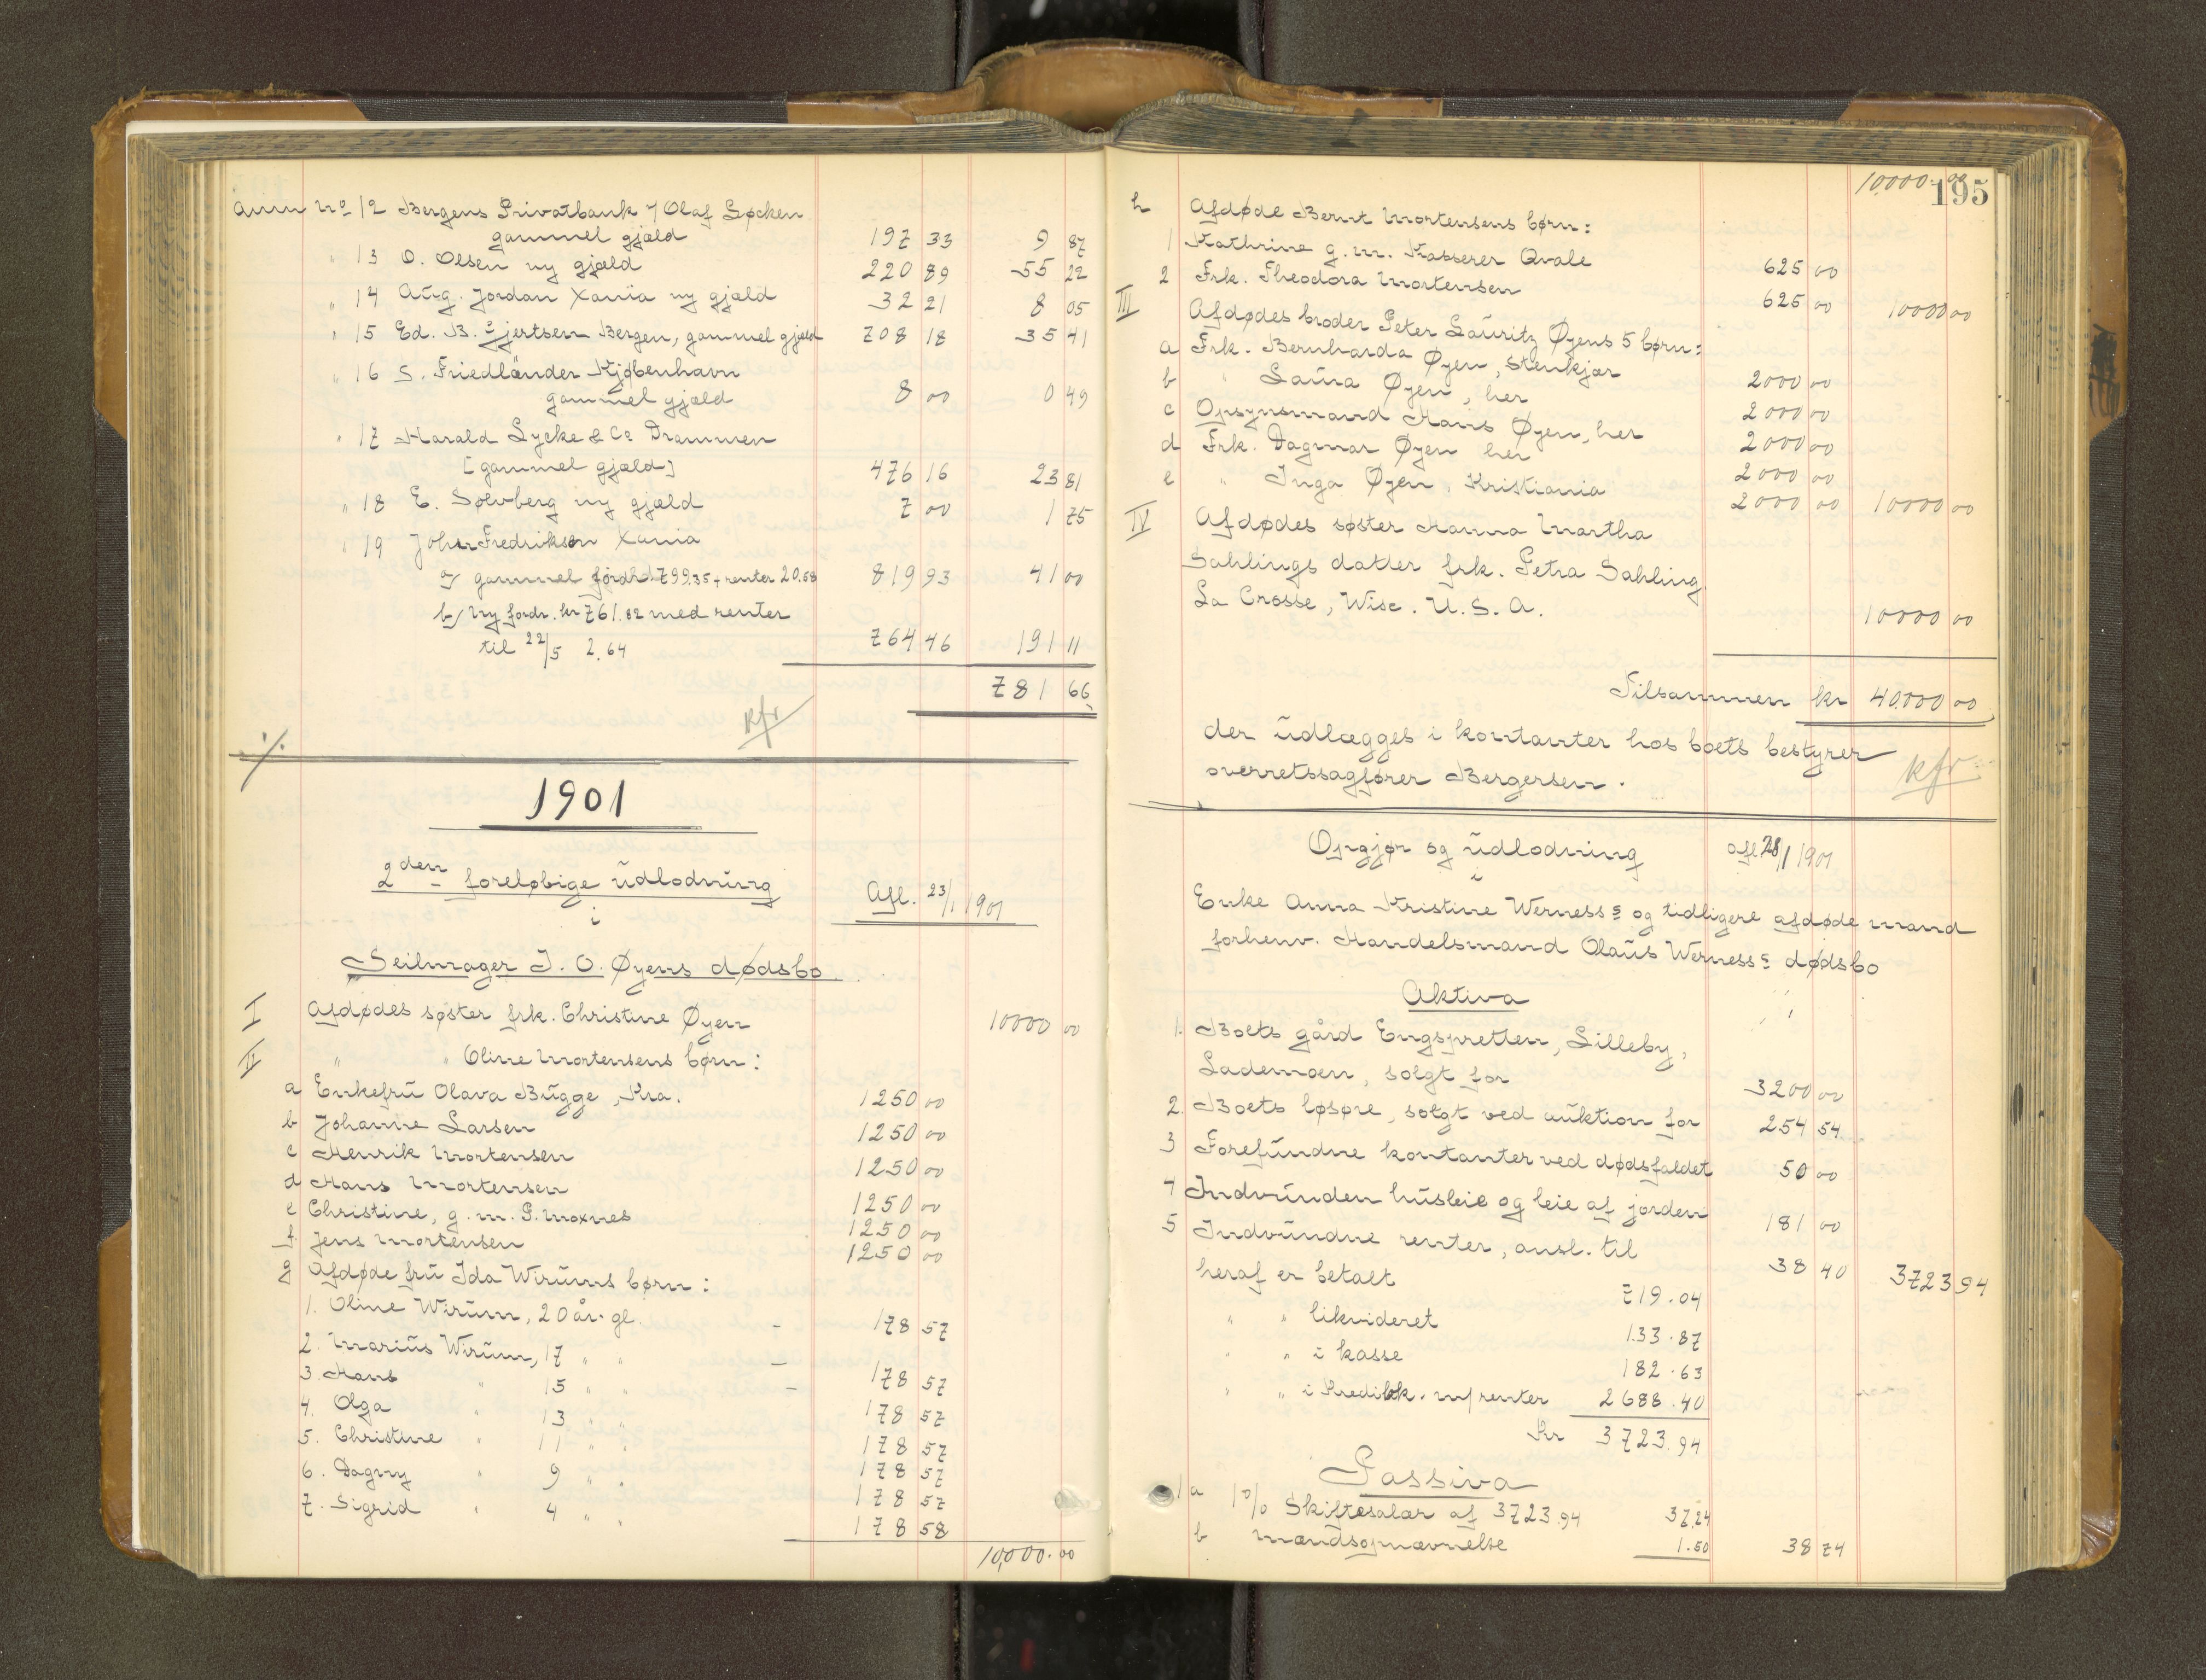 Anm No 12 Bergens Privatbank ɤ Olaf Løcken
gammel gjæld 197 33 9 87
" 13 O. Olsen ny gjæld 220 89 55 22
" 14 Aug. Jordan Xania ny gjæld 32 21 8 05
" 15 Ed. B. Gjertsen Bergen, gammel gjæld 708 18 35 41
" 16 S. Friedländer Kjøbenhavn
gammel gjæld 8 00 0 49
" 17 Harald Lycke & Co Drammen
[gammel gjæld] 476 16 23 81
" 18 E. Solvberg ny gjæld 7 00 1 75
" 19 John Fredriksen Xania
a/ gammel fordr. 799.35 + renter 20.58 819 93 41 00
b/ ny fordr. kr 761.82 med renter
til 22/5 2.64 764 46 191 11
781 66
kfr
·/·
1901
2den foreløbige udlodning Afl. 23/1 1901
i
Seilmager J. O. Øyens dødsbo
I Afdødes søster frk. Christine Øyen 10000 00
II " " Oline Mortensens børn:
a Enkefru Olava Bugge, Kra. 1250 00
b Johanne Larsen 1250 00
c Henrik Mortensen 1250 00
d Hans Mortensen 1250 00
e Christine, g. m. P. Moxnes 1250 00
f. Jens Mortensen 1250 00
g Afdøde fru Ida Wirums børn:
1. Oline Wirum, 20 år. gl. - 178 57
2. Marius Wirum, 17 " " - 178 57
3. Hans " 15 " " - 178 57
4. Olga " 13 " " 178 57
5. Christine " 11 " " 178 57
6. Dagny " 9 " " 178 57
7. Sigrid " 4 " " 178 58
10,000.00
10,000.00
195
h Afdøde Bernt Mortensens børn:
1 Kathrine g. m. Kasserer Qvale 625 00
2 Frk. Theodora Mortensen 625 00 10000 00
III Afdødes broder Peter Lauritz Øyens 5 børn:
a Frk. Bernharda Øyen, Stenkjær 2000 00
b " Laura Øyen, her 2000 00
c Opsynsmand Hans Øyen, her 2000 00
d Frk. Dagmar Øyen her 2000 00
e " Inga Øyen, Kristiania 2000 00 10000 00
IV Afdødes søster Hanna Martha
Sahlings datter frk. Petra Sahling
La Crosse, Wisc. U. S. A. 10000 00
Tilsammen kr 40.000 00
der udlægges i kontanter hos boets bestyrer
overretssagfører Bergersen.
kfr
Opgjør og udlodning afl 28/1 1901
i
Enke Anna Kristine Werness's og tidligere afdøde mand
forhenv. Handelsmand Olaus Werness's dødsbo
Aktiva
1. Boets gård Engspretten, Lilleby,
Lademoen, solgt for 3200 00
2. Boets løsøre, solgt ved auktion for 254 54
3 Forefundne kontanter ved dødsfaldet 50 00
4 Indvunden husleie og leie af jorden 181 00
5 Indvundne renter, ansl. til 38 40 3723 94
heraf er betalt 719.04
" " likvideret 133.87
" " i kasse 182.63
" " i Kreditbk. m/renter 2688.40
Kr 3723.94
Passiva
1 a 1% Skiftesalær af 3723.94 37.24
b mandsopnævnelse 1.50 38 74